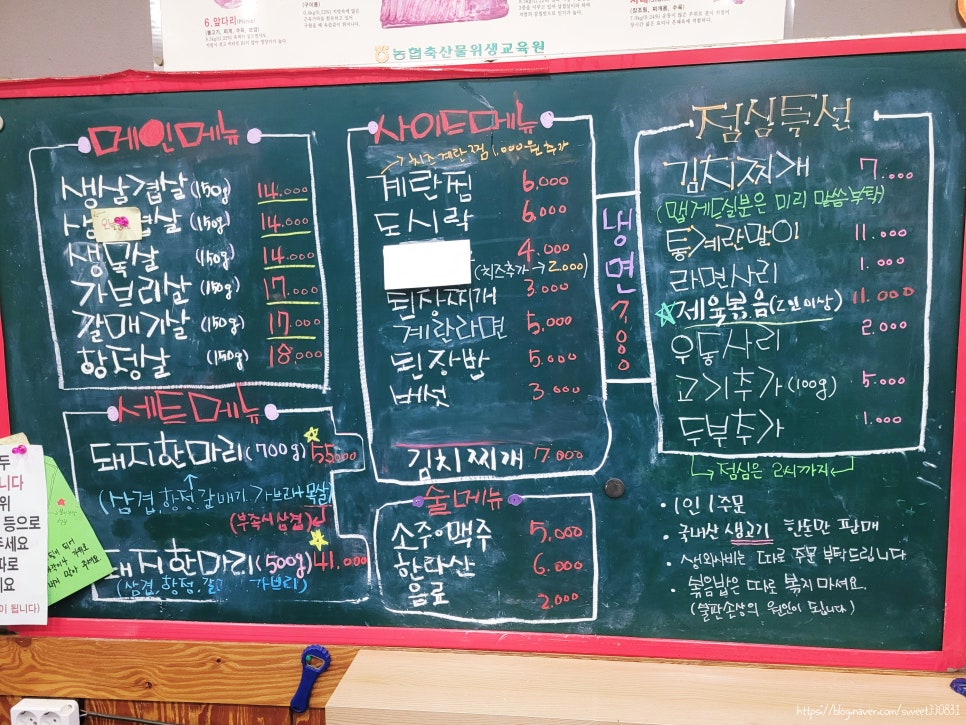 6.앞다리
농협축산물위생교육원
메인메뉴
생삼겹살(150g) 14.000
삼겹살(150g) 14.000
생목살(150g) 14.000
가브리살(150g) 17.000
갈매기살(150g) 17.000
항정살(150g) 18.000
세트메뉴
돼지한마리(700g) 55.000
(삼겹,항정,갈매기,가브리+목살)
(부족시삼겹)
돼지한마리(500g) 41.000
(삼겹,항정,갈 가브리)
사이드메뉴
→치즈계란찜 1.000원추가
계란찜 6.000
도시락 6.000
4.000
(치즈추가→2.000)
된장찌개 3.000
계란라면 5.000
된장밥 5.000
버섯 3.000
김치찌개 7.000
냉면 7000
술메뉴
소주·맥주 5.000
한라산 6.000
음료 2.000
점심특선
김치찌개 7.000
(맵게드실분은 미리 말씀부탁)
통계란말이 11.000
라면사리 1.000
☆제육볶음(2인이상) 11.000
우동사리 2.000
고기추가(100g) 5.000
두부추가 1.000
점심은 2시까지
• 1인 1주문
• 국내산 생고기 한돈만 판매
• 생와사비는 따로 주문 부탁드립니다
• 볶음밥은 따로 볶지 마세요.
(불판손상의 원인이 됩니다)
https://blog.naver.com/sweet330831